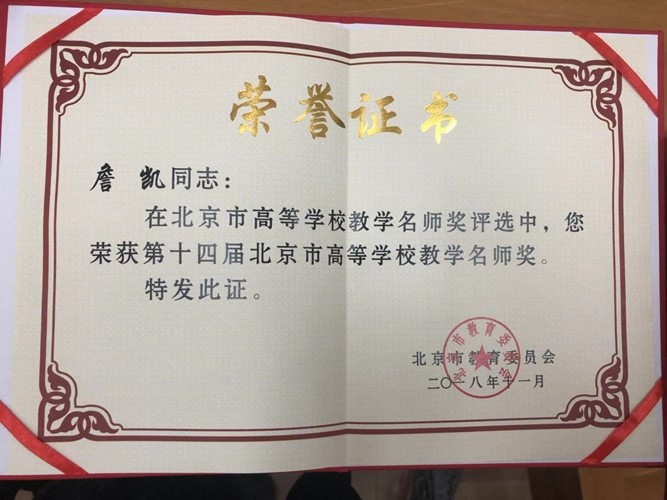 荣誉证书
詹 凯同志：
在北京市高等学校教学名师奖评选中，您
荣获第十四届北京市高等学校教学名师奖。
特发此证。
北京市教育委员会
二〇一八年十一月
北京市教育委员会